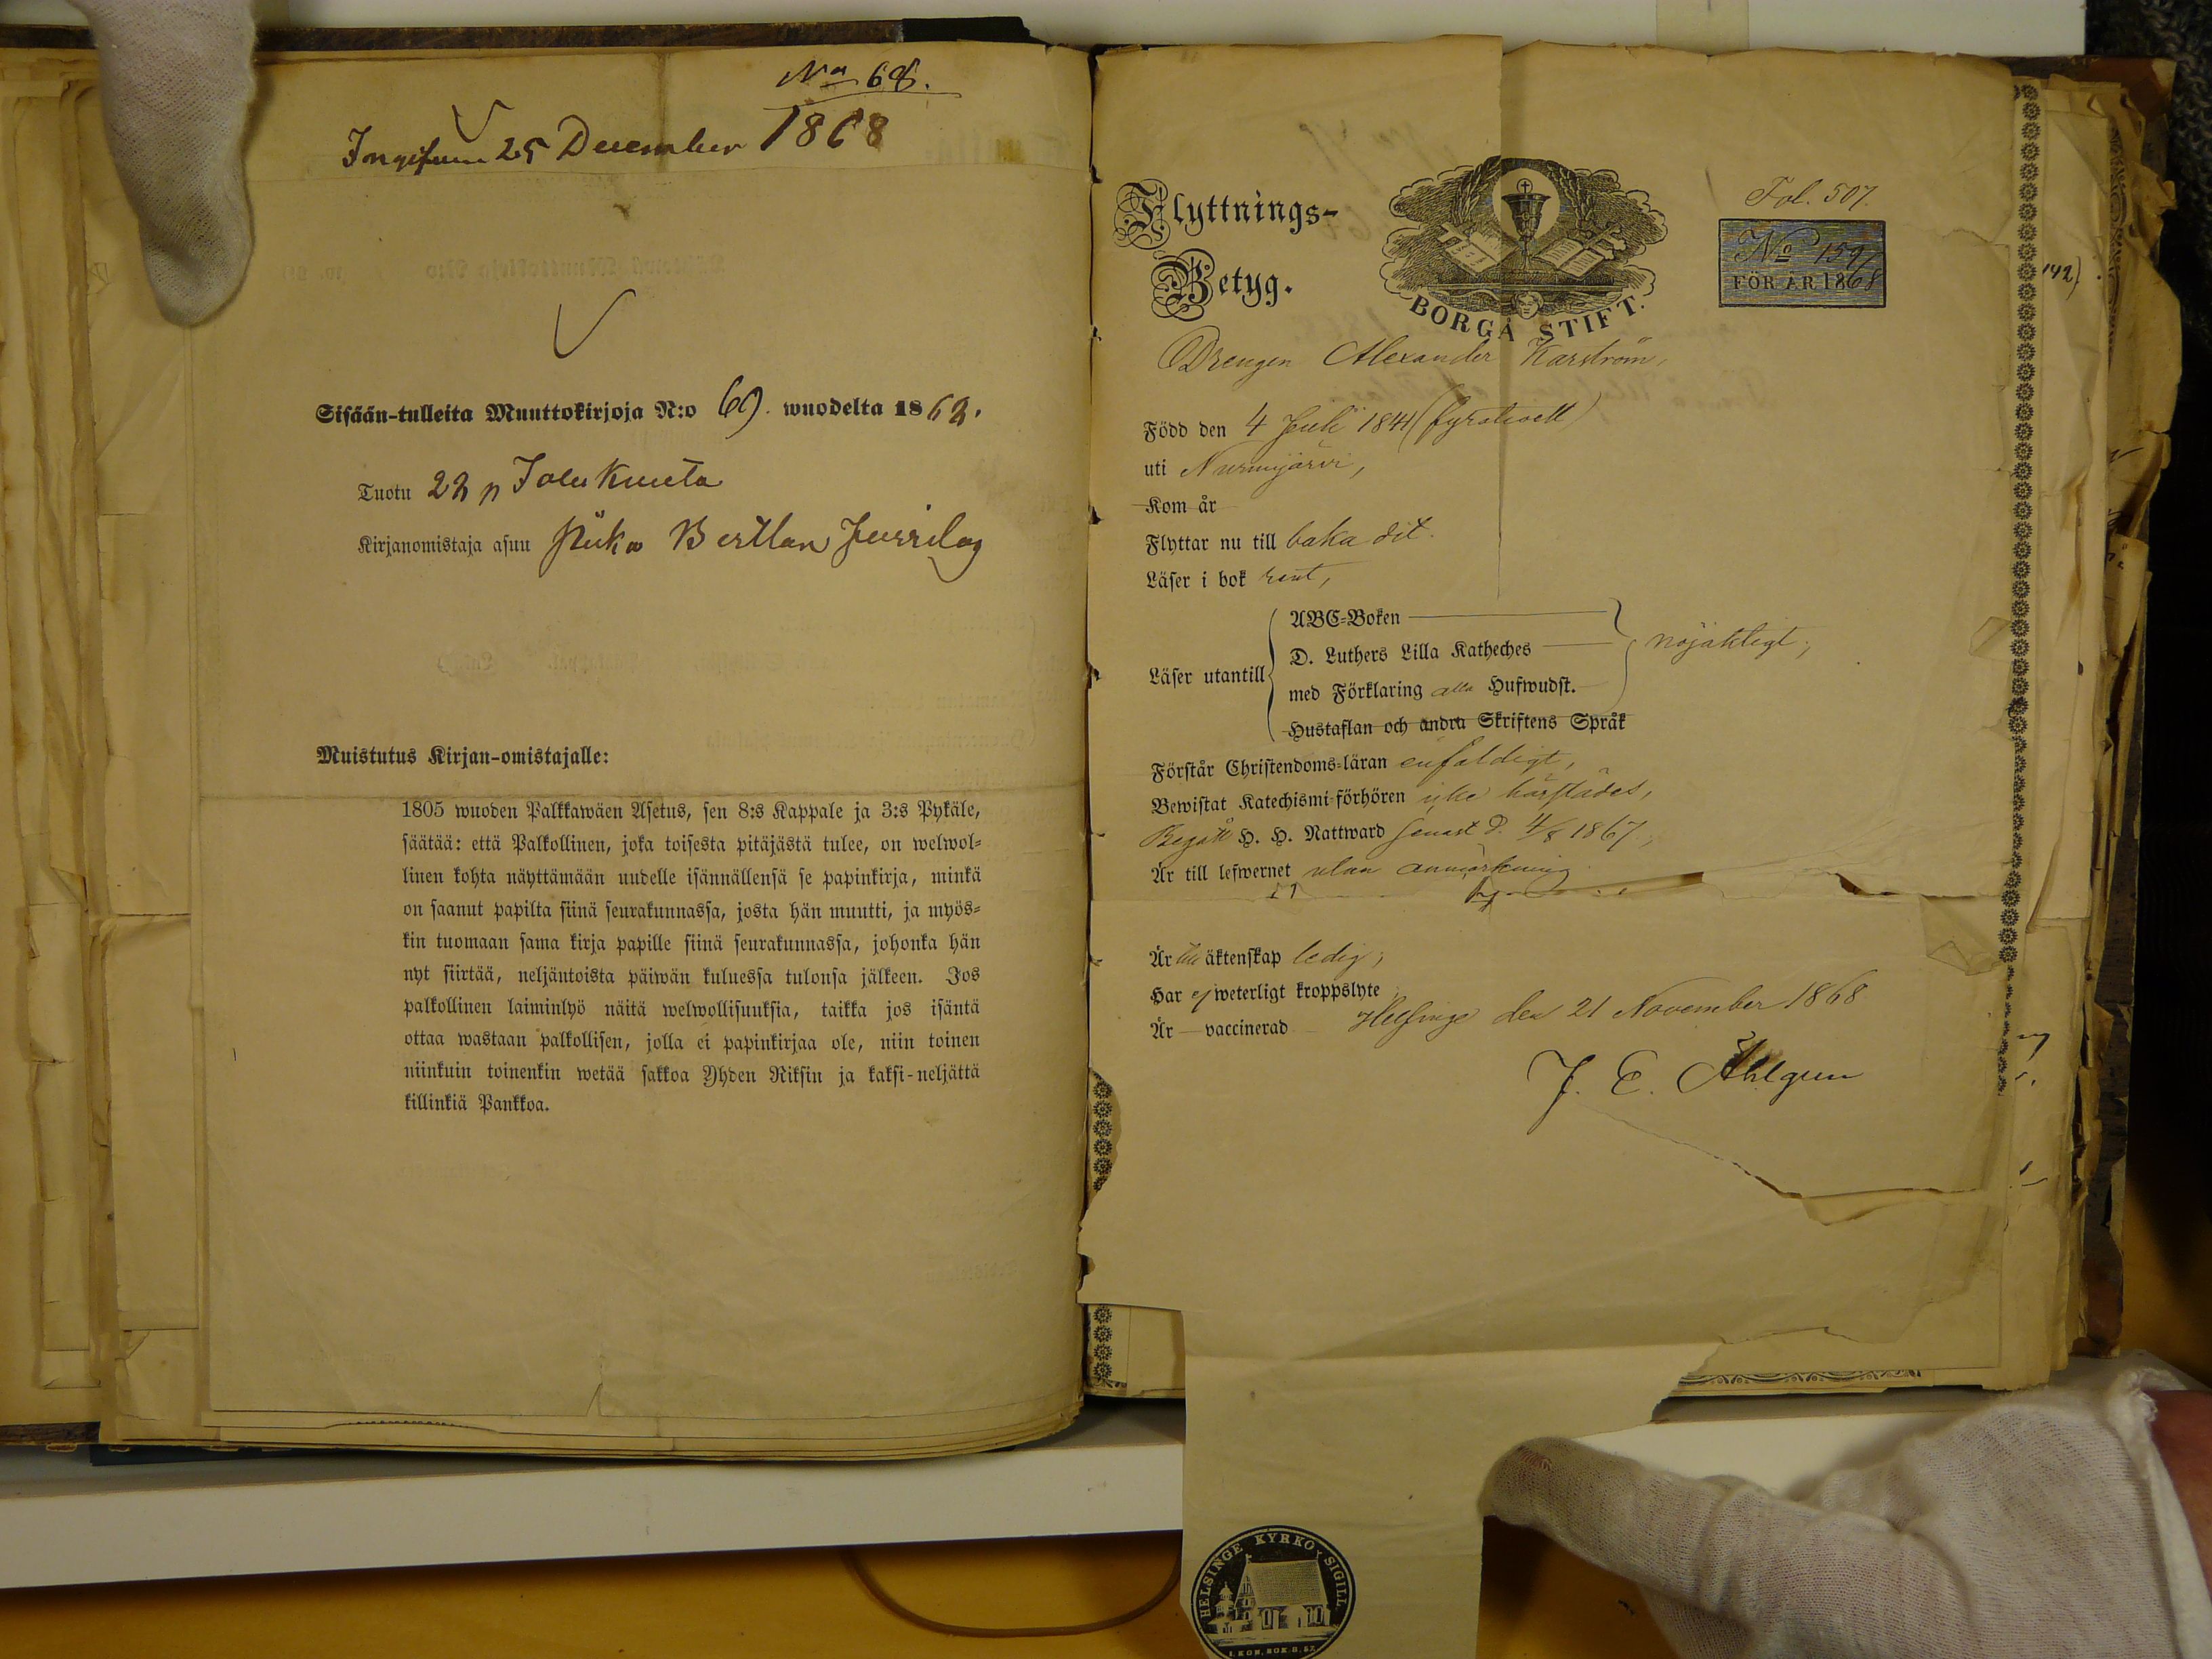 No 68.
25 December 1868
Sisään-tulleita Muuttokirjoja N:o 69. wuodelta 1868.
Tuotu 22 p Joulukuuta
Kirjanomistaja asuu
Muistutus Kirjan-omistajalle:
1805 wuoden Palkkawäen Asetus, sen 8:s Kappale ja 3:s Pykäle,
säätää: että Palkollinen, joka toisesta pitäjästä tulee, on welwol=
linen kohta näyttämään uudelle isännällensä se papinkirja, minkä
on saanut papilta siinä seurakunnassa, josta hän muutti, ja myös=
kin tuomaan sama kirja papille siinä seurakunnassa, johonka hän
nyt siirtää, neljäntoista päiwän kuluessa tulonsa jälkeen. Jos
palkollinen laiminlyö näitä welwollisuuksia, taikka jos isäntä
ottaa wastaan palkollisen, jolla ei papinkirjaa ole, niin toinen
niinkuin toinenkin wetää sakkoa Yhden Riksin ja kaksi-neljättä
killinkiä Pankkoa.
Flyttnings-
Betyg.
BORGÅ STIFT.
Fol. 507.
No 159
FÖR ÅR 1868
142)
Drengen Alexander Karström,
Född den 4 Juli 1841 (fyrationett)
uti Nurmijärvi,
Kom år
Flyttar nu till baka dit.
Läser i bok rent,
Läser utantill
ABC=Boken
D. Luthers Lilla Katheches
med Förklaring alla Hufwudst.
Hustaflan och andra Skriftens Språk
nöjaktigt,
Förstår Christendoms=läran enfaldigt,
Bewistat Katechismi=förhören icke härstädes,
Begått H. H. Nattward senast d. 4/8 1867,
Är till lefwernet utan anmärkning
Är till äktenskap ledig,
Har ej weterligt kroppslyte
Är vaccinerad
Helsinge den 21 November 1868
J. E. Ahlgren
HELSINGE KYRKO SIGILL.